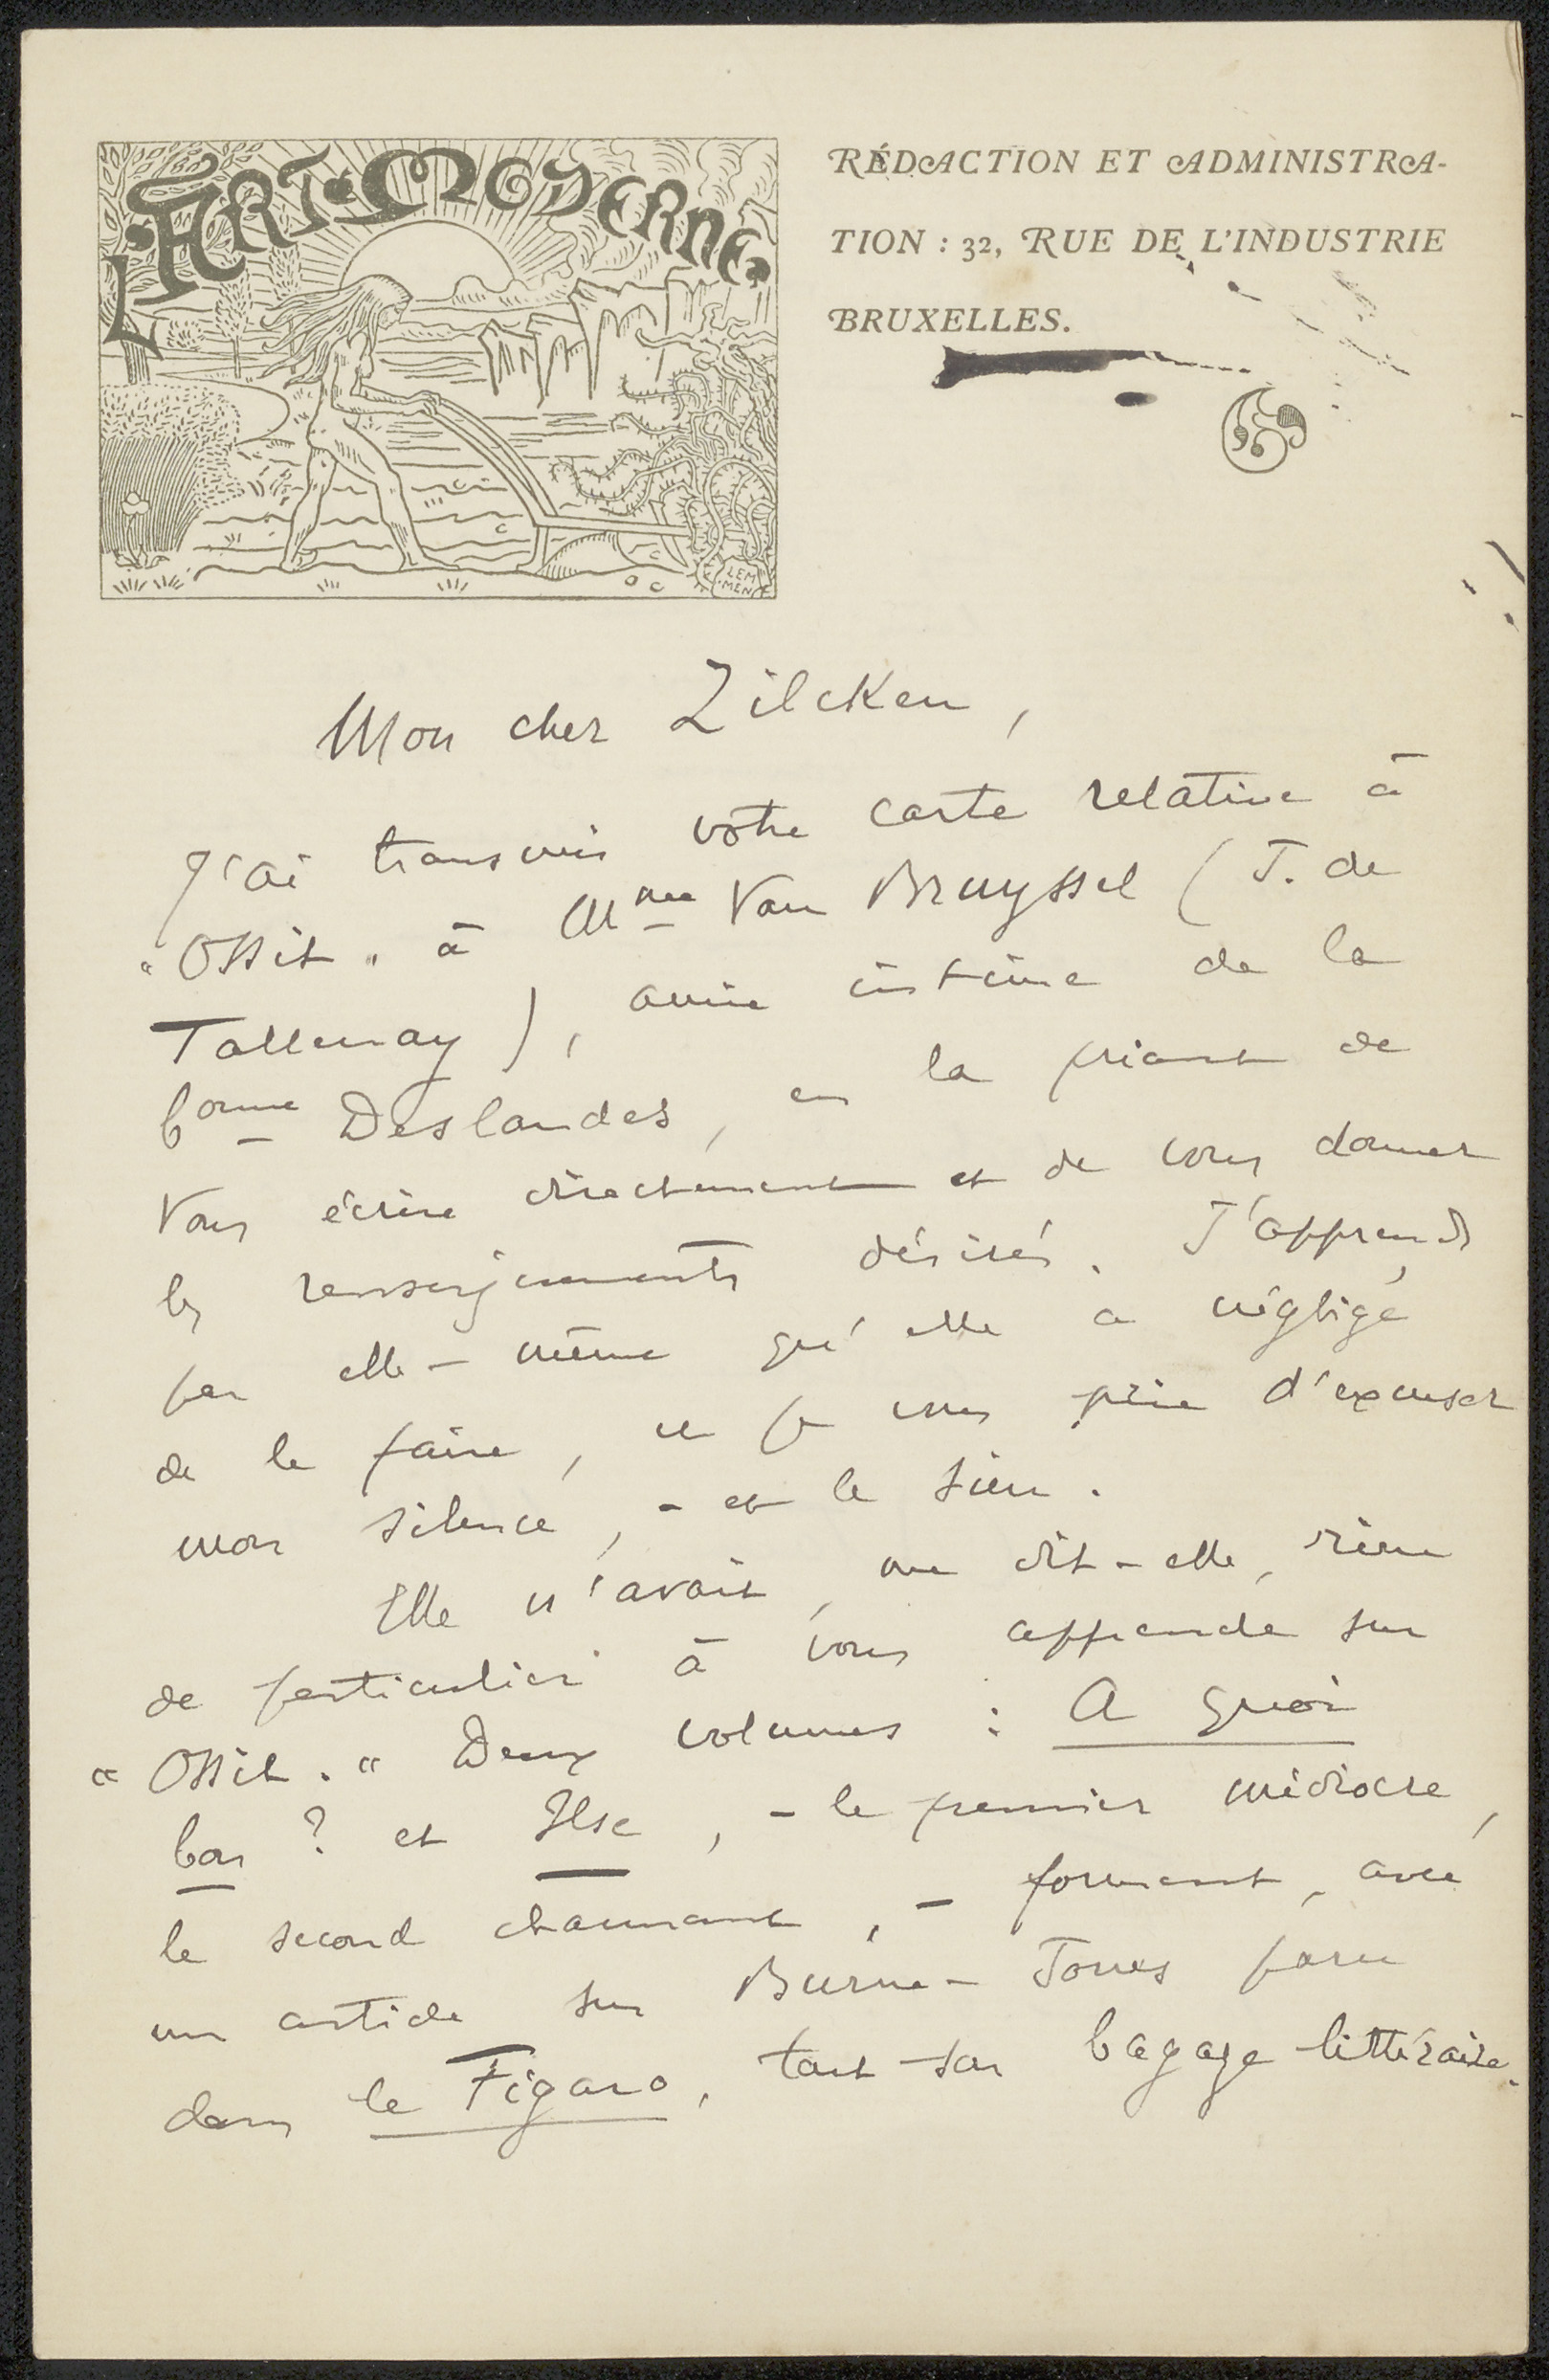 L'ART MODERNE
LEM
MEN
RÉDACTION ET ADMINISTRA-
TION : 32, RUE DE L'INDUSTRIE
BRUXELLES.
Mon cher Zilcken,
J'ai transmis votre carte relative à
"Ossit" à Mme Van Bruyssel (J. de
Tallenay), amie intime de la
bonne Deslandes, en la priant de
vous écrire directement et de vous donner
les renseignements désirés. J'apprends
par elle-même qu'elle a négligé
de le faire, et je vous prie d'excuser
mon silence, - et le sien.
Elle n'avait, me dit-elle, rien
de particulier à vous apprendre sur
"Ossit." Deux volumes : A quoi
bon ? et Ilse, - le premier médiocre,
le second charmant, - forment, avec
un article sur Burne-Jones paru
dans le Figaro, tout son bagage littéraire.